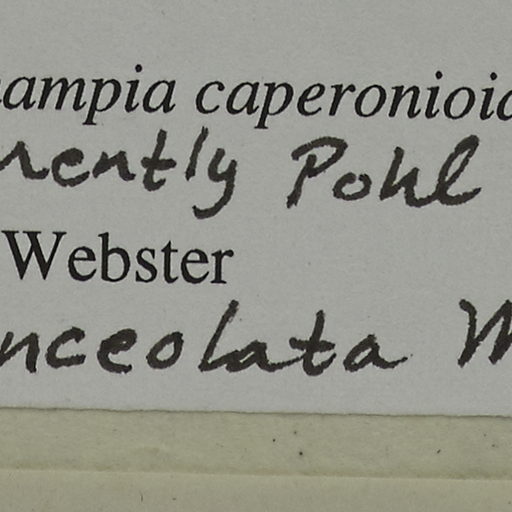 ampia caperonioi
nently Pohl
Webster
nceolata